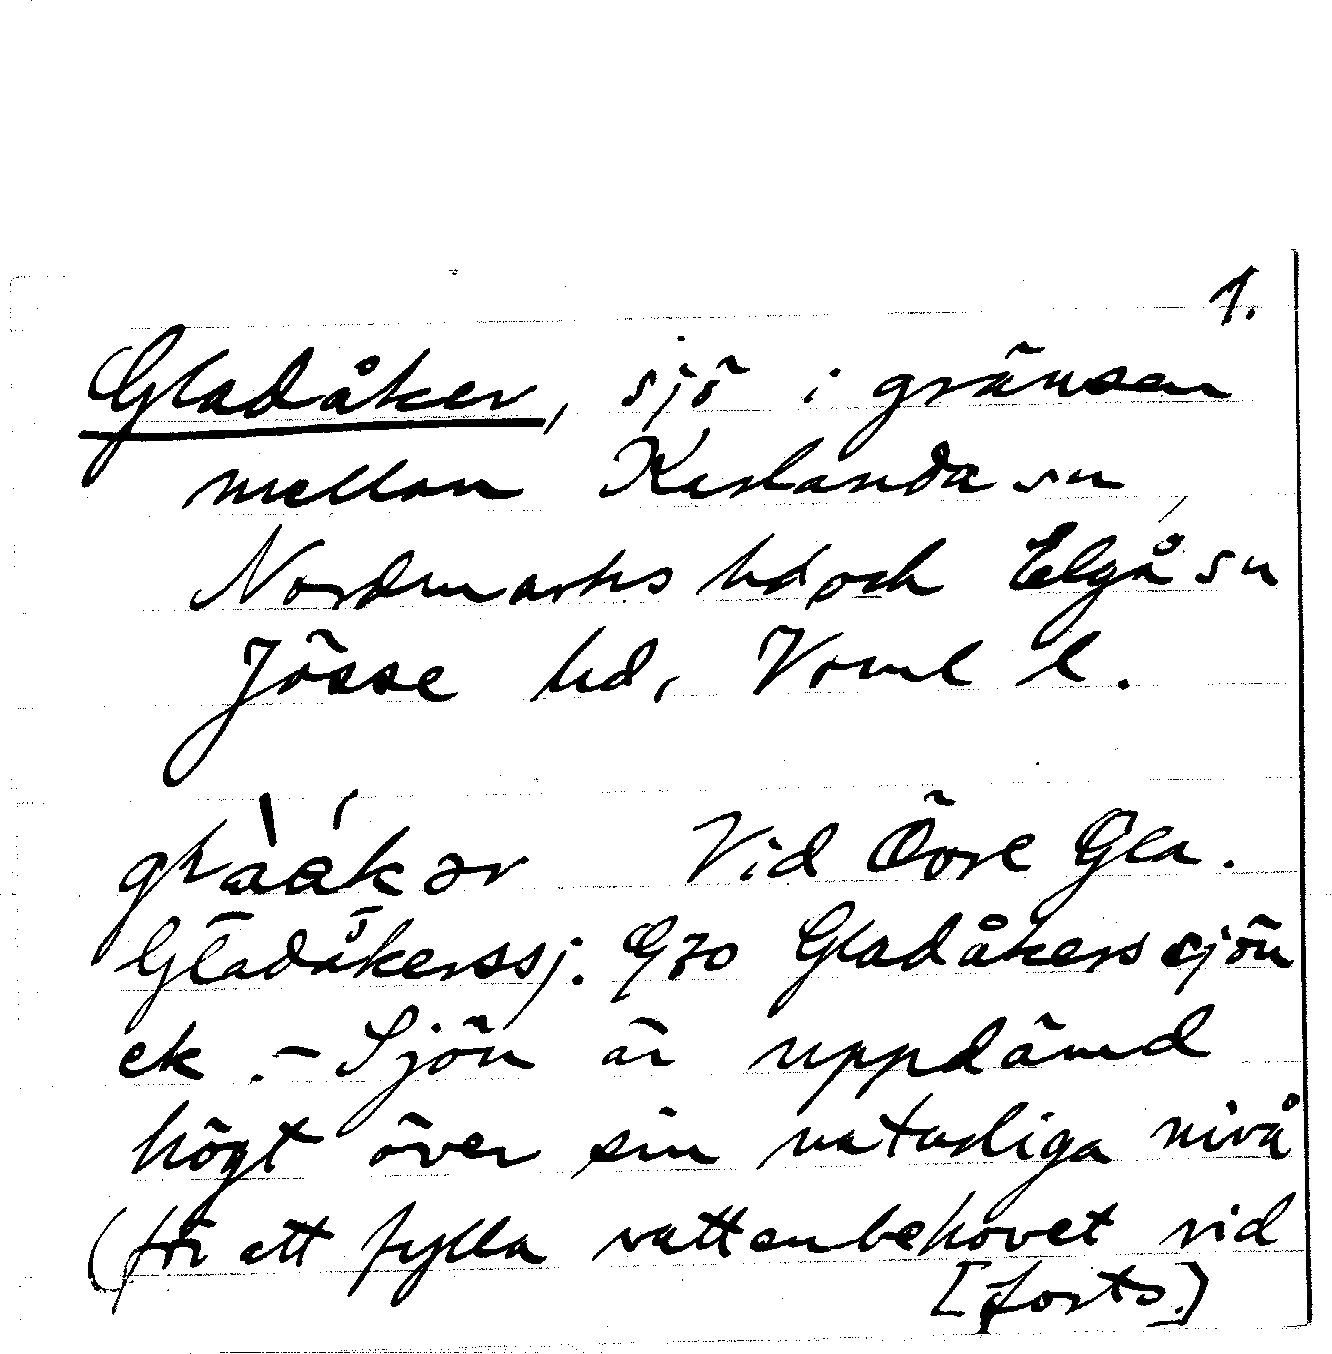 1.
Gladåker, sjö i gränsen
mellan Karlanda sn,
Nordmarks hd och Elgå sn
Jösse hd, Vrml l.
Vid Övre Gla.
Gladåkerssj. G70 Gladåkerssjön
ek. – Sjön är uppdämd
högt över sin naturliga nivå
(för att fylla vattenbehovet vid
[forts.)